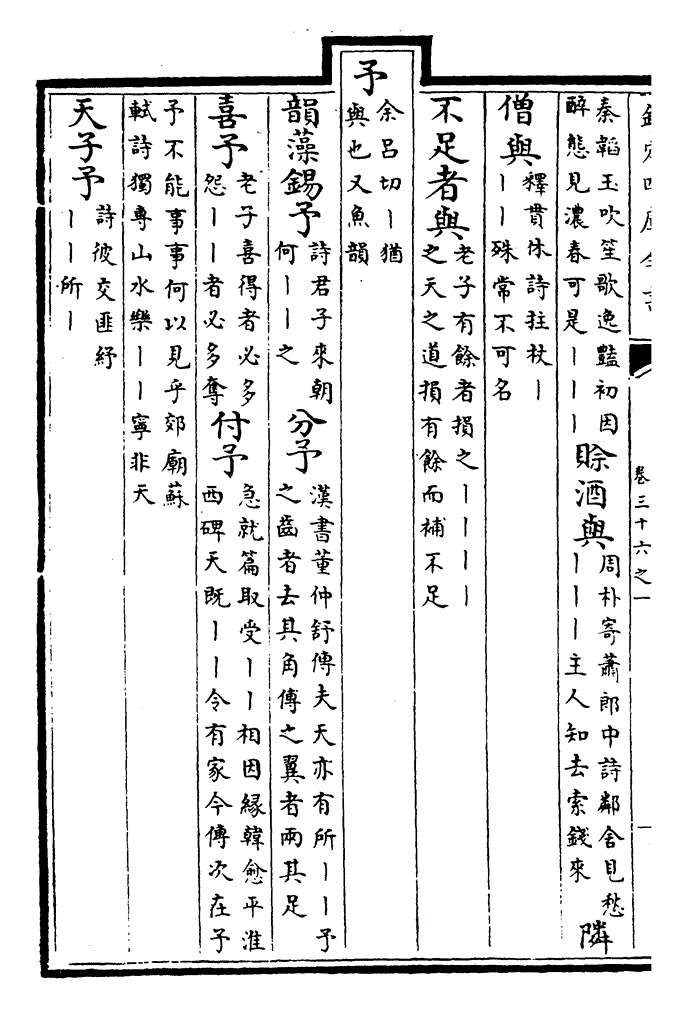 欽定四庫全書
卷三十六之一
秦韜玉吹笙歌逸豔初因
醉態見濃春可是丨丨丨
賒酒與
周朴寄蕭郎中詩鄰舍見愁
丨丨丨主人知去索錢來
隣
僧與
釋貫休詩拄杖丨
丨丨殊常不可名
不足者與
老子有餘者損之丨丨丨丨
之天之道損有餘而補不足
予
余呂切丨猶
與也又魚韻
韻藻錫予
詩君子來朝
何丨丨之
分予
漢書董仲舒傳夫天亦有所丨丨予
之齒者去其角傳之翼者兩其足
喜予
老子喜得者必多
怨丨丨者必多奪
付予
急就篇取受丨丨相因緣韓愈平淮
西碑天既丨丨令有家今傳次在予
予不能事事何以見乎郊廟蘇
軾詩獨專山水樂丨丨寧非天
天子予
詩彼交匪紓
丨丨所丨